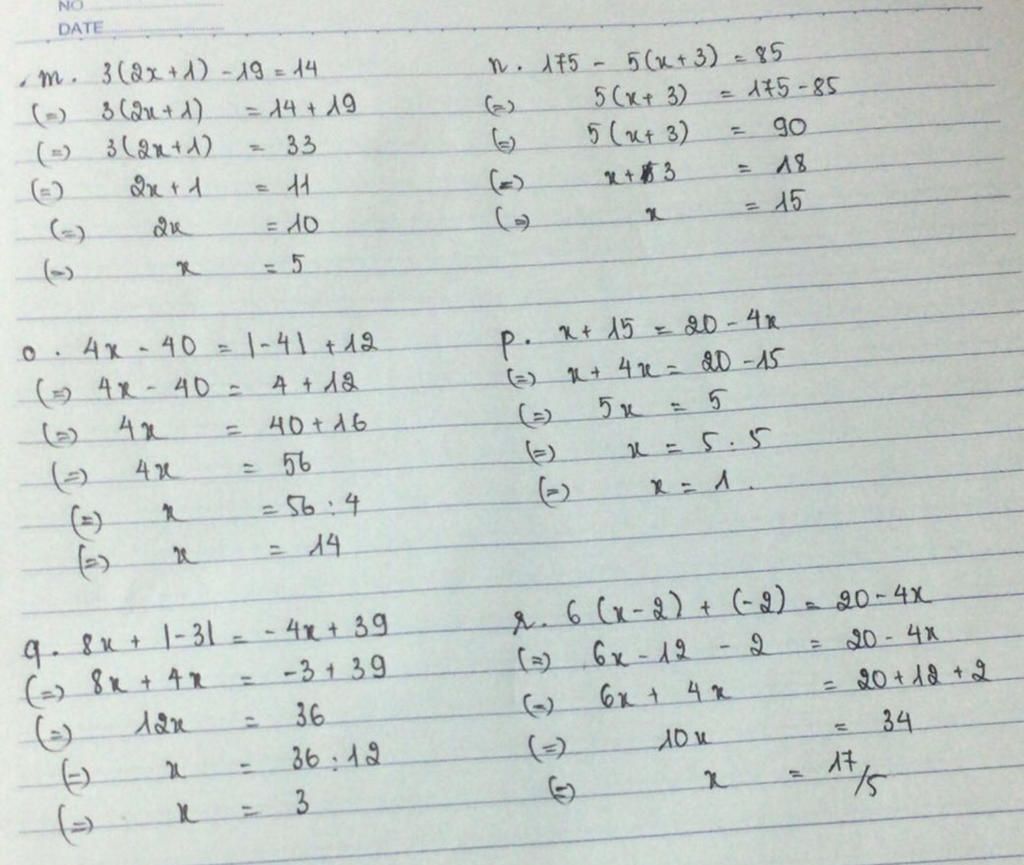 NO
DATE
m. 3(2x+1) - 19 = 14
(=) 3(2x+1) = 14 + 19
(=) 3(2x+1) = 33
(=) 2x+1 = 11
(=) 2x = 10
(=) x = 5
n. 175 - 5(x+3) = 85
(=) 5(x+3) = 175 - 85
(=) 5(x+3) = 90
(=) x+3 = 18
(=) x = 15
o. 4x - 40 = |-4| + 12
(=) 4x - 40 = 4 + 12
(=) 4x = 40 + 16
(=) 4x = 56
(=) x = 56 : 4
(=) x = 14
p. x + 15 = 20 - 4x
(=) x + 4x = 20 - 15
(=) 5x = 5
(=) x = 5 : 5
(=) x = 1.
q. 8x + |-3| = -4x + 39
(=) 8x + 4x = -3 + 39
(=) 12x = 36
(=) x = 36 : 12
(=) x = 3
r. 6(x-2) + (-2) = 20 - 4x
(=) 6x - 12 - 2 = 20 - 4x
(=) 6x + 4x = 20 + 12 + 2
(=) 10x = 34
(=) x = 17/5